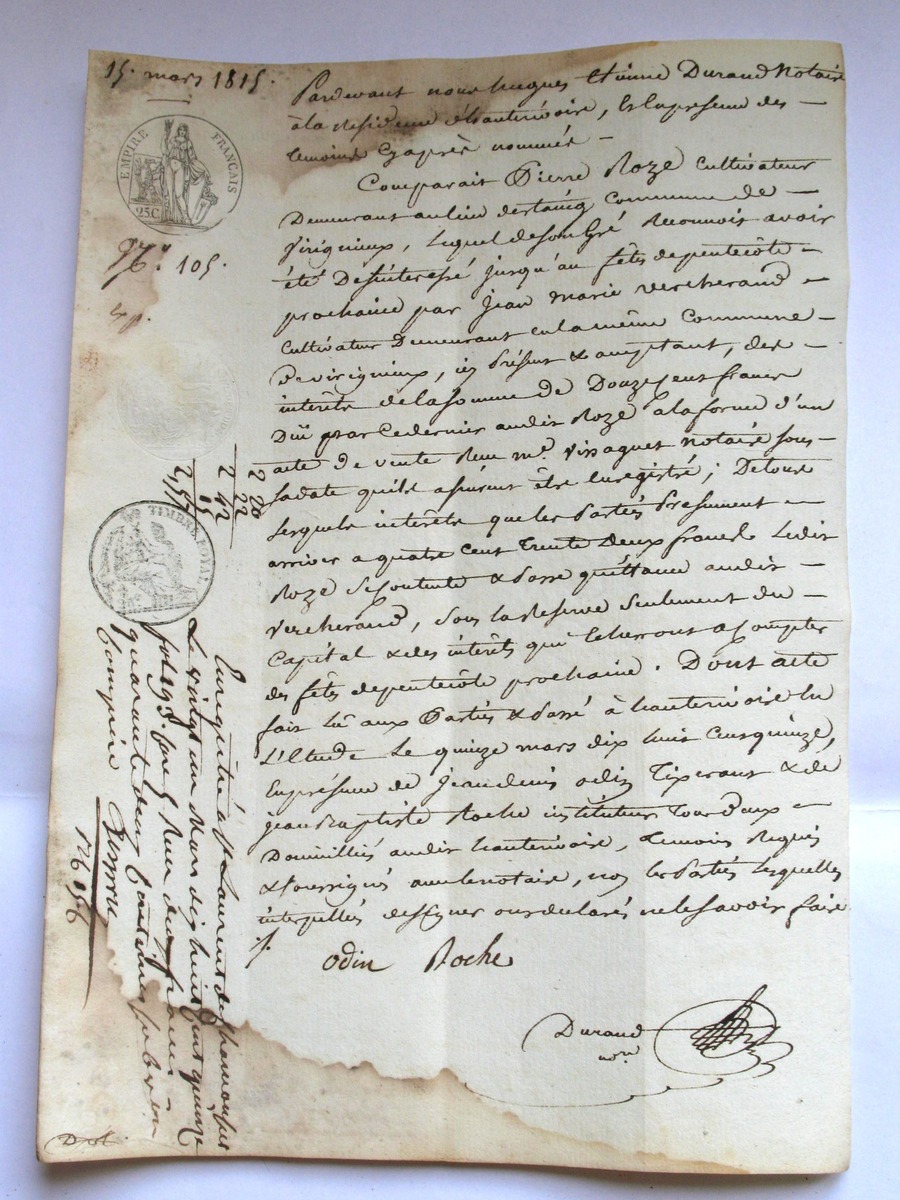 15. mars 1815.
EMPIRE FRANÇAIS
25C
N.º 105.
TIMBRE ROYAL
Pardevant nous hugues Etienne Durand Notaire
à la Residence de hauterivoire, Et la presence des
temoins Cy après nommés
Comparait Pierre Roze Cultivateur
Demeurant au lieu de commune de
Virignieux, lequel de son Gré Reconnois avoir
été Desinteressé jusqu'au fêtes de pentecôte
prochaine par jean marie vercherand
Cultivateur Demeurant en la même Commune
de virignieux, ici Présent & acceptant, des
interêts de la somme de Douze cent francs
Dûe par Ce dernier audit Roze a la forme d'un
acte de vente Reçu m.e notaire sous
sa date qu'ils assurent être Enregistré; De tous
lesquels interêts que les Partiés Presument
arriver a quatre Cent Trente Deux francs Ledit
Roze se Contente & Passe quittance audit
Vercherand, sous la Reserve seulement du
Capital & des interêts qui Echerront a Compter
des fêtes de pentecôte prochaine. Dont acte
fait lû aux Partiés & Passé à hauterivoire En
L'Etude Le quinze mars dix huit Cent quinze,
En présence de jean denis odin Tixerant & de
jean Baptiste Roche instituteur Tous Deux
Domiciliés audit hauterivoire, temoins Requis
& soussignés avec le notaire, non les Partiés lesquelles
interpellés de signer ont declarés ne le savoir faire
odin Roche
Durand
no.re
2 20
22
2 42
15
2,57
Enregistré à St Laurent de chamousset
Le vingt un Mars dix huit Cent quinze
fol. 93. Reçu deux francs
quarante deux Centimes
Compris